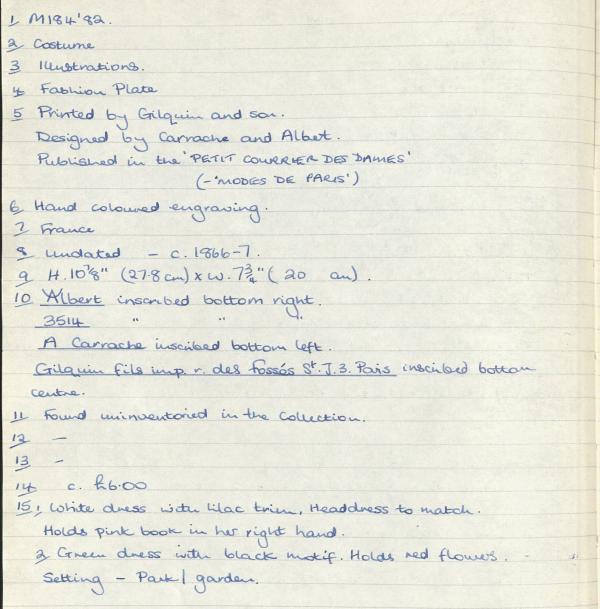 1 M184'82.
2 Costume
3 Illustrations.
4 Fashion Plate
5 Printed by Gilquin and son.
Designed by Carrache and Albert.
Published in the 'PETIT COURRIER DES DAMES'
(-'MODES DE PARIS')
6 Hand coloured engraving.
7 France
8 undated - c. 1866-7.
9 H. 10⅞" (27.8cm) x W. 7¾" (20 cm).
10 Albert inscribed bottom right.
3514 " " "
A Carrache inscribed bottom left.
Gilquin fils imp. r. des fossés St. J. 3. Paris inscribed bottom
centre.
11 Found uninventoried in the Collection.
12 -
13 -
14 c. £6.00
15, 1 White dress with lilac trim, Headdress to match.
Holds pink book in her right hand.
2 Green dress with black motif. Holds red flowers.
Setting - Park/garden.